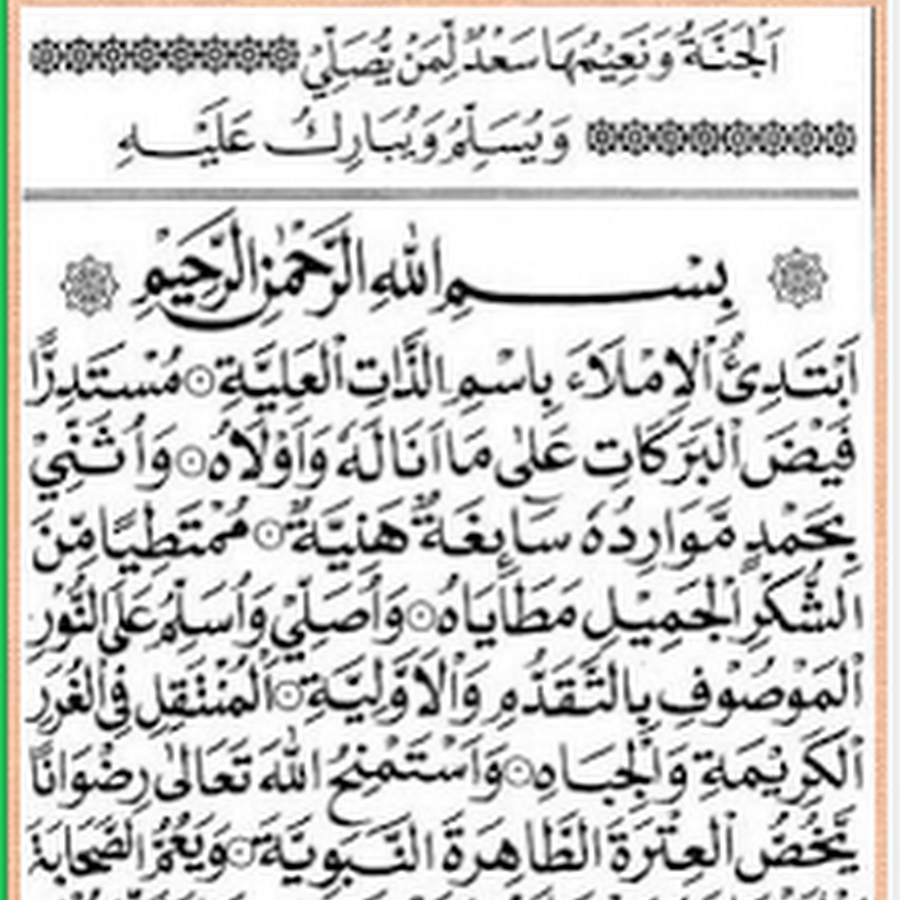 اَلْجَنَّةُ وَنَعِيْمُهَا سَعْدٌ لِّمَنْ يُّصَلِّيْ
وَيُسَلِّمُ وَيُبَارِكُ عَلَيْهِ
بِسْمِ اللهِ الرَّحْمٰنِ الرَّحِيْمِ
اَبْتَدِئُ الْاِمْلَاءَ بِاسْمِ الذَّاتِ الْعَلِيَّةِ ۞ مُسْتَدِرًّا
فَيْضَ الْبَرَكَاتِ عَلٰى مَا اَنَالَهٗ وَاَوْلَاهُ ۞ وَاُثَنِّيْ
بِحَمْدٍ مَّوَارِدُهٗ سَآئِغَةٌ هَنِيَّةٌ ۞ مُمْتَطِيًا مِّنَ
الشُّكْرِ الْجَمِيْلِ مَطَايَاهُ ۞ وَاُصَلِّيْ وَاُسَلِّمُ عَلَى النُّوْرِ
الْمَوْصُوْفِ بِالتَّقَدُّمِ وَالْاَوَّلِيَّةِ ۞ اَلْمُنْتَقِلِ فِي الْغُرَرِ
الْكَرِيْمَةِ وَالْجِبَاهِ ۞ وَاَسْتَمْنِحُ اللهَ تَعَالٰى رِضْوَانًا
يَّخُصُّ الْعِتْرَةَ الطَّاهِرَةَ النَّبَوِيَّةَ ۞ وَيَعُمُّ الصَّحَابَةَ